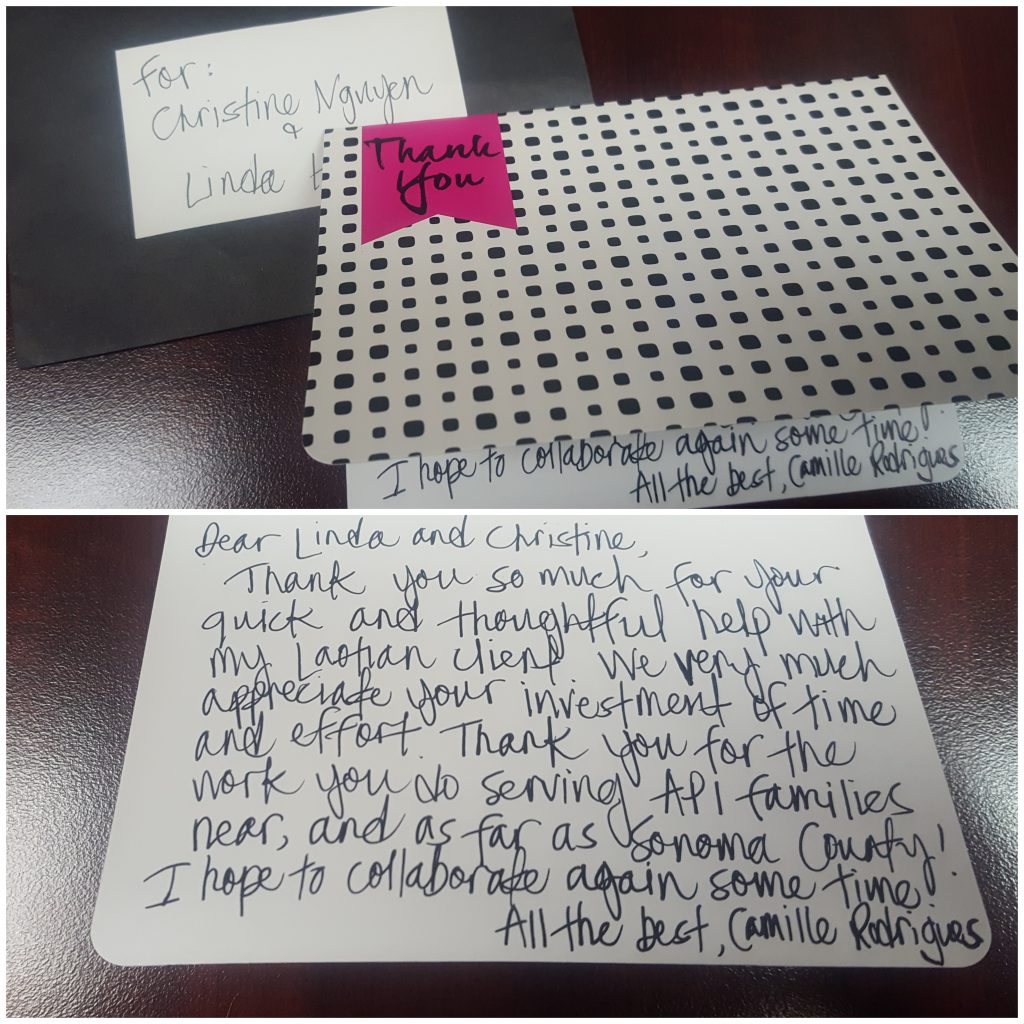 For:
Christine Nguyen
&
Linda
Thank
You
I hope to collaborate again some time!
All the best, Camille Rodrigues
Dear Linda and Christine,
Thank you so much for your
quick and thoughtful help with
my Laotian client. We very much
appreciate your investment of time
and effort. Thank you for the
work you do serving API families
near, and as far as Sonoma County!
I hope to collaborate again some time!
All the best, Camille Rodrigues